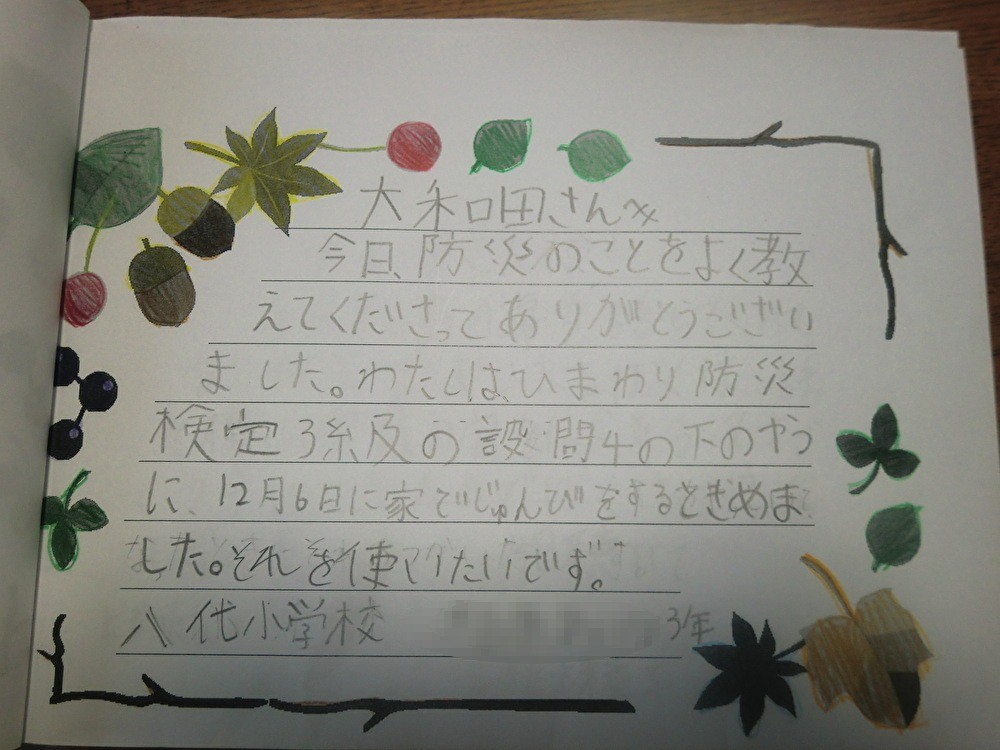 大和田さんへ
今日、防災のことをよく教
えてくださってありがとうござい
ました。わたしは、ひまわり防災
検定3級の設問4の下のやつ
に、12月6日に家でじゅんびをするときめま
した。それを使いたいです。
八代小学校 3年